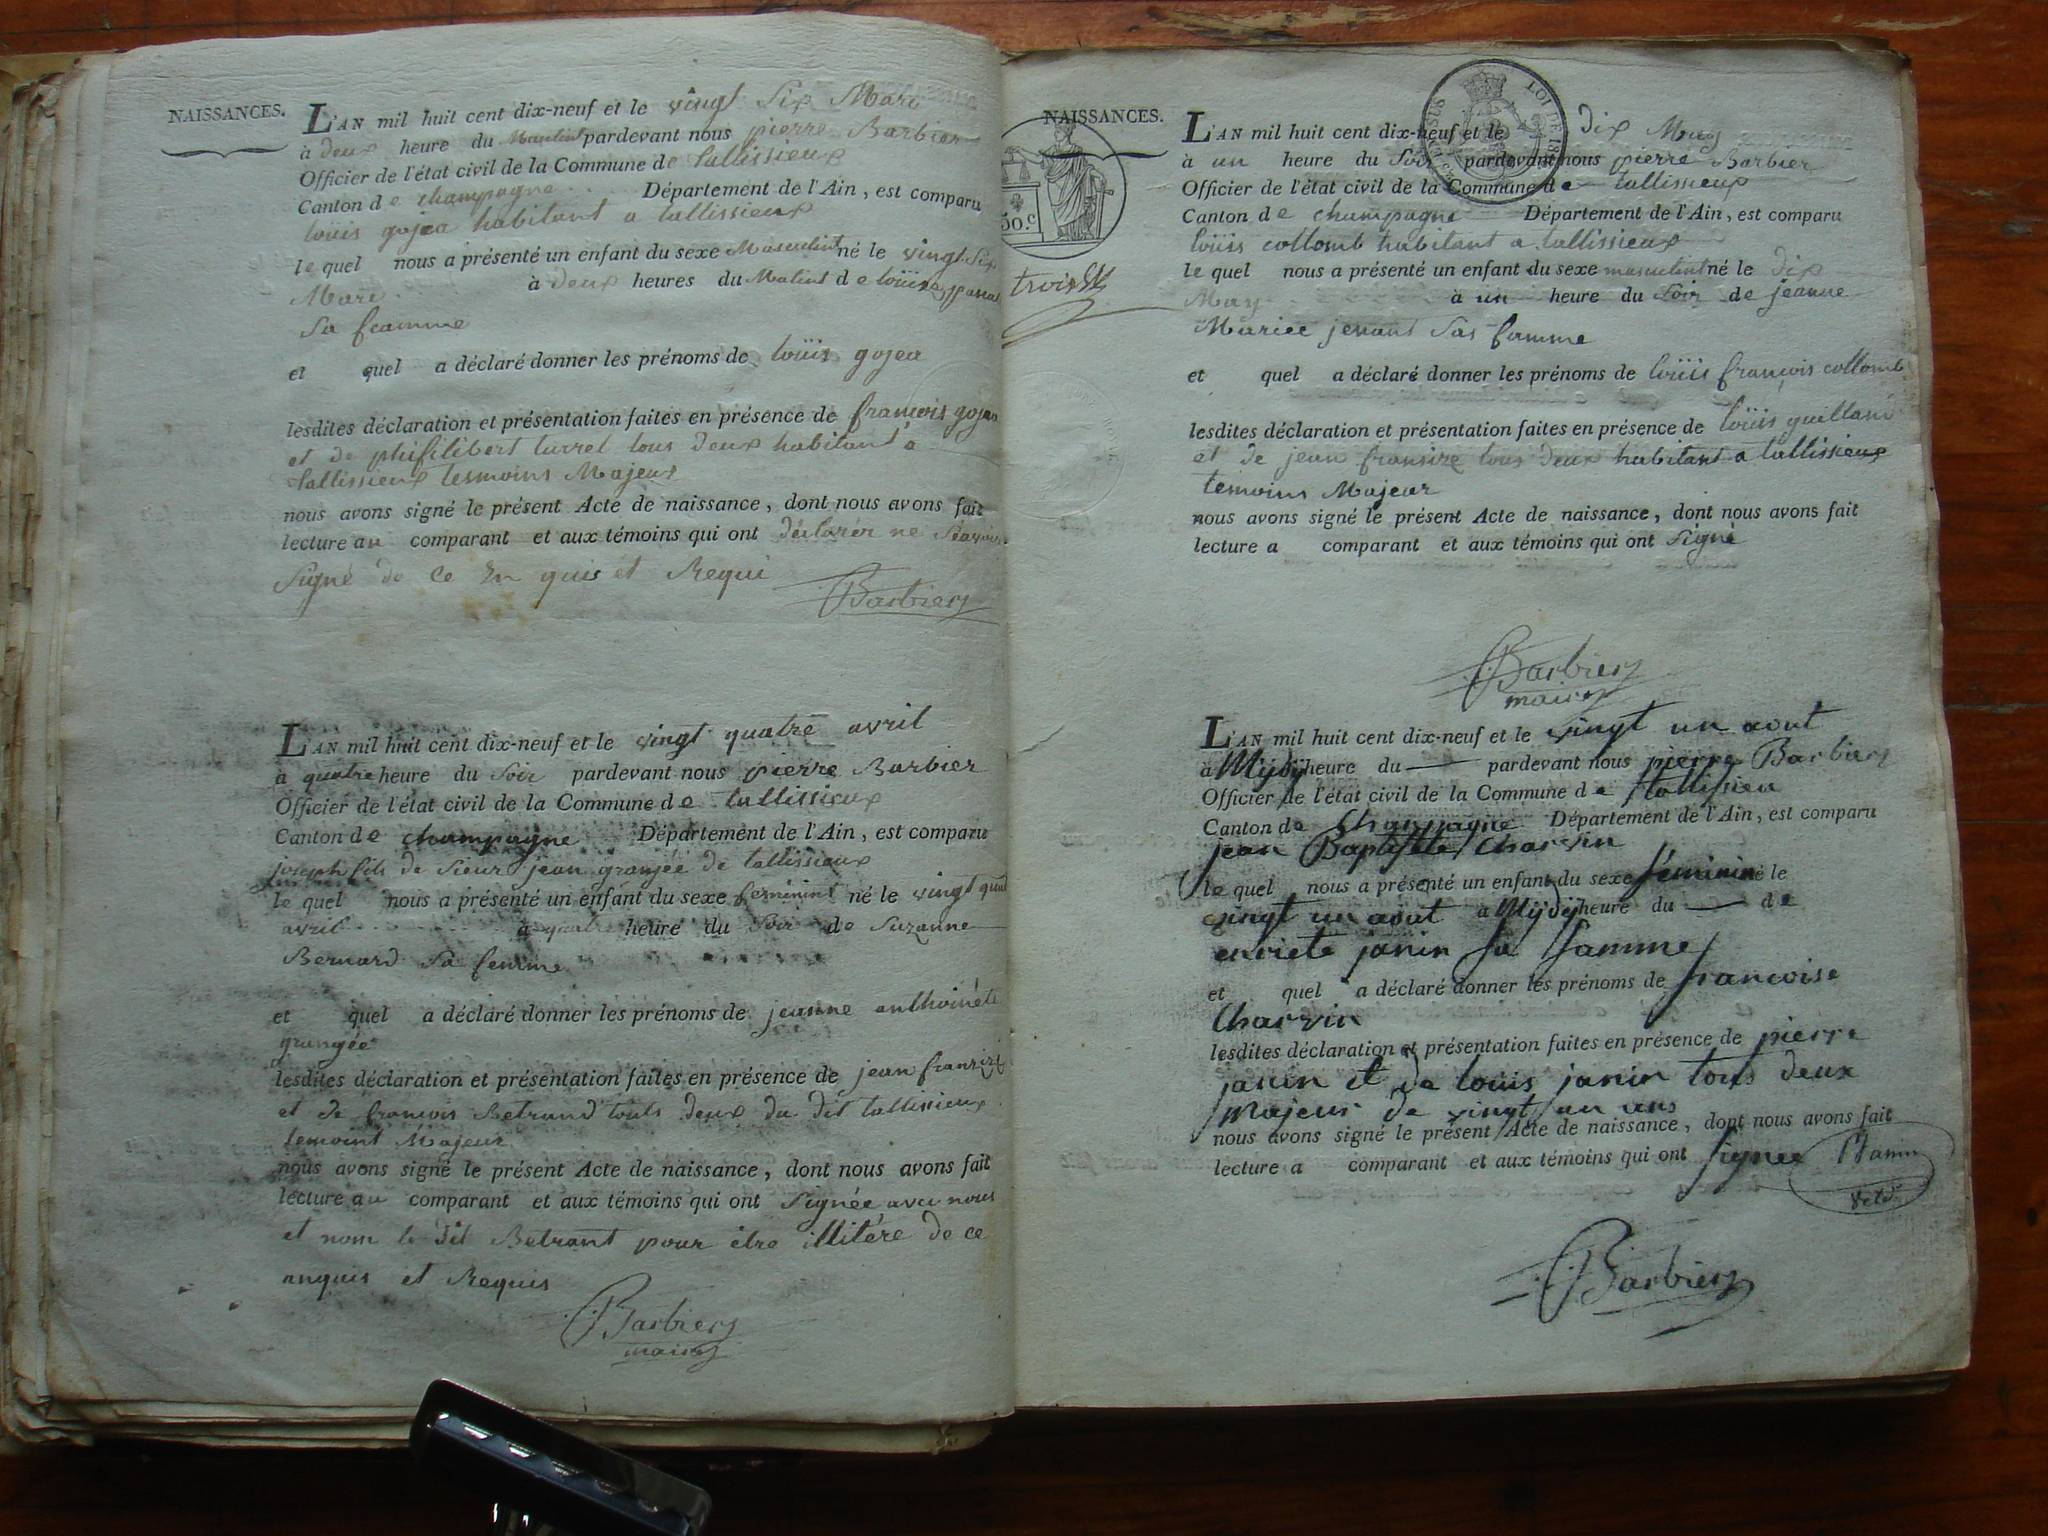 NAISSANCES.
L'AN mil huit cent dix-neuf et le vingt Six Mars
à deux heure du Matint pardevant nous pierre Barbier
Officier de l'état civil de la Commune de tallissieux
Canton de champagne Département de l'Ain, est comparu
louis gojea habitant a tallissieux
le quel nous a présenté un enfant du sexe Masculint né le vingt Six
Mars à deux heures du Matint de
Sa feamme
et quel a déclaré donner les prénoms de loüis gojea
lesdites déclaration et présentation faites en présence de francois gojea
et de phifilibert turrel tous deux habitant a
tallissieux tesmoins Majeur
nous avons signé le présent Acte de naissance, dont nous avons fait
lecture au comparant et aux témoins qui ont déclarer ne
Signé de Ce En quis et Requi
Barbier
L'AN mil huit cent dix-neuf et le vingt quatre avril
à quatre heure du Soir pardevant nous pierre Barbier
Officier de l'état civil de la Commune de tallissieux
Canton de champagne Département de l'Ain, est comparu
joseph fils de Sieur jean grangée de tallissieux
le quel nous a présenté un enfant du sexe feminint né le vingt quat
avril à quatre heure du Soir de Suzanne
Bernard Sa femme
et quel a déclaré donner les prénoms de jeanne anthoinete
grangée
lesdites déclaration et présentation faites en présence de jean
et de francois Betrand touts deux du dit tallissieux
temoint Majeur
nous avons signé le présent Acte de naissance, dont nous avons fait
lecture au comparant et aux témoins qui ont Signée avec nous
et nom le dit Betrant pour etre illitére de ce
anquis et Requis
Barbier
maire
NAISSANCES.
LOI DE
50.c
trois
L'AN mil huit cent dix-neuf et le dix May
à un heure du Soir pardevant nous pierre Barbier
Officier de l'état civil de la Commune de tallissieux
Canton de champagne Département de l'Ain, est comparu
loüis collomb habitant a tallissieux
le quel nous a présenté un enfant du sexe masculint né le dix
May à un heure du Soir de jeanne
Mariee jenant Sas famme
et quel a déclaré donner les prénoms de loüis françois collomb
lesdites déclaration et présentation faites en présence de loüis
et de jean tous deux habitant a tallissieux
temoins Majeur
nous avons signé le présent Acte de naissance, dont nous avons fait
lecture a comparant et aux témoins qui ont Signé
Barbier
maire
L'AN mil huit cent dix-neuf et le vingt un aout
à Mÿdÿ heure du pardevant nous pierre Barbier
Officier de l'état civil de la Commune de tallissieu
Canton de Champagne Département de l'Ain, est comparu
jean Baptiste Charvin
le quel nous a présenté un enfant du sexe féminin né le
vingt un aout a Mÿdÿ heure du de
enriete janin Sa famme
et quel a déclaré donner les prénoms de francoise
Charvin
lesdites déclaration et présentation faites en présence de pierre
janin et de louis janin tous deux
majeur de vingt un ans
nous avons signé le présent Acte de naissance, dont nous avons fait
lecture a comparant et aux témoins qui ont Signee
Barbier